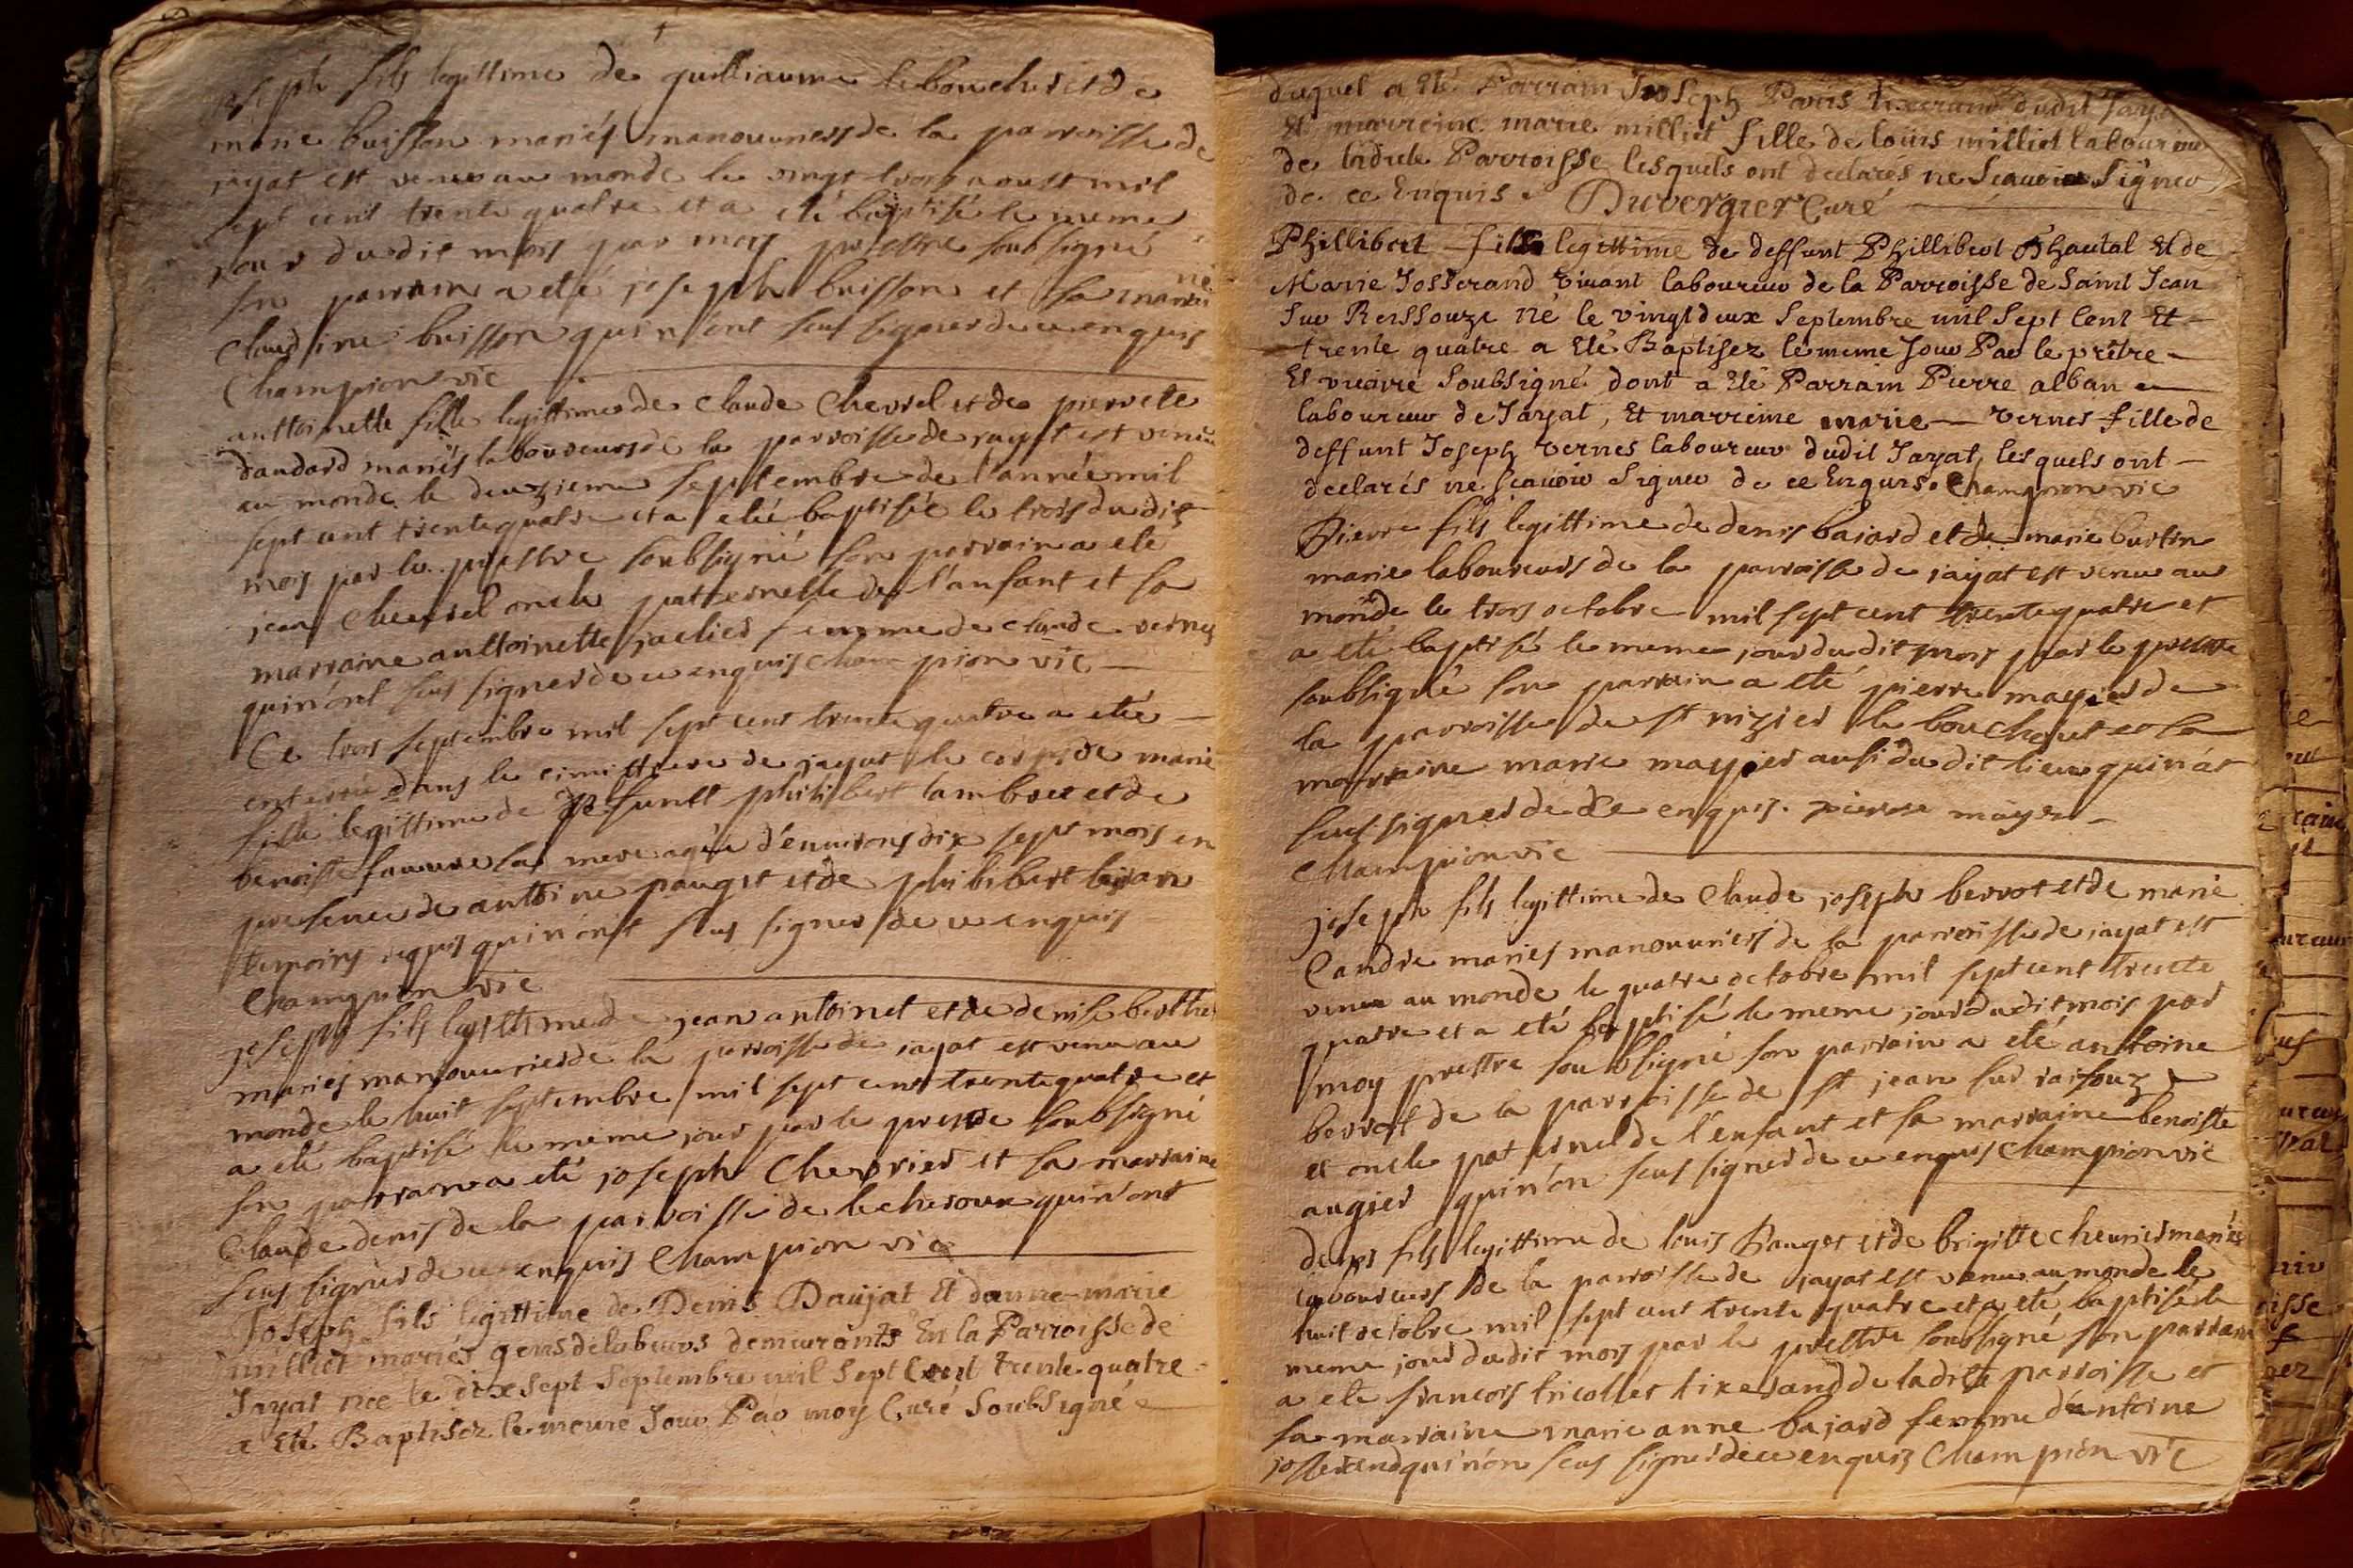 joseph fils legittime de guilliaume le boucher et de
marie buisson mariés manouuriers de la parroisse de
jayat est venu au monde le vingt trois aoust mil
sept cent trente quatre et a eté baptisé le meme
jour du dit mois par moy prestre soubsigné
son parrain a eté joseph buisson et sa marrainne
Claudine buisson qui n'ont seus signer de ce enquis
Champion vic
anttoinette fille legittime de Claude Chevrel et de pierrete
dandard mariés laboureurs de la parroisse de jayat est venue
au monde le deuzieme septembre de l'année mil
sept cent trente quatre et a eté baptisée le trois du dit
mois par le prestre soubsigné son parrain a eté
jean Chevrel oncle patternelle de l'anfant et sa
marraine anttoinette jaclier femme de claude vernes
qui n'ont seus signer de ce enquis Champion vic
Ce trois septembre mil sept cent trente quatre a eté
enterré dans le cimittiere de jayat le corps de marie
fille legittime de deffunt philibert lambret et de
benoiste sa mere agée d'enuirons dix sept mois en
presence de anttoine pauget et de philibert
temoins requis qui n'ont seus signer de ce enquis
Champion vic
joseph fils legittime de jean antoinet et de denise berthet
mariés manouurier de la parroisse de jayat est venu au
monde le huit septembre mil sept cent trente quatre et
a eté baptisé le meme jour par le prestre soubsigné
son parrain a eté joseph Chevrier et sa marraine
Claude denis de la parroisse de lecheroux qui n'ont
seus signer de ce enquis Champion vic
Joseph fils legittime de Denis Daujat Et danne marie
milliet mariés gens de labeurs demeurants En la Parroisse de
Jayat née le dix sept Septembre mil Sept Cent trente quatre
a Eté Baptisez le meme Jour Par moy Curé Soubsigné
duquel a Eté Parrain Joseph Pauis texerand dudit Jayat
Et marreine marie milliet fille de loüis milliet laboureur
de ladite Parroisse lesquels ont declarés ne Scauoir Signer
de ce Enquis Duvergier Curé
Phillibert fils legittime de deffunt Phillibert Chautal Et de
Marie Josserand Viuant laboureur de la Parroisse de Saint Jean
Sur Reissouze né le vingt deux Septembre mil Sept Cent Et
trente quatre a Eté Baptisez le meme Jour Par le prêtre
Et vicaire Soubsigné dont a Eté Parrain Pierre alban
laboureur de Jayat, Et marreine marie vernes fille de
deffunt Joseph Vernes laboureur dudit Jayat, lesquels ont
declarés ne Scauoir Signer de ce Enquis. Champion vic
Pierre fils legittime de denis bajard et de marie burtin
marie laboureurs de la parroisse de jayat est venu au
monde le trois octobre mil sept cent trente quatre et
a eté baptisé le meme jour du dit mois par le prestre
soubsigné son parrain a eté pierre mayier de
la parroisse de st nizier le bouchout et sa
marraine marie mayier ausi du dit lieu qui n'at
seus signer de ce enquis. pierre mayer
Champion vic
joseph fils legittime de Claude joseph berrot et de marie
Candre mariés manouuriers de la parroisse de jayat est
venu au monde le quatre octobre mil sept cent trente
quatre et a eté baptisé le meme jour du dit mois par
moy prestre soubsigné son parrain a eté anttoine
berrot de la parroisse de st jean sur raisouze
et oncle paternel de l'enfant et sa marraine benoiste
augier qui n'on seus signer de ce enquis Champion vic
denis fils legittime de louis Pauget et de brigitte cheurier mariés
laboureurs de la parroisse de jayat est venu au monde le
huit octobre mil sept cent trente quatre et a eté baptisé le
meme jour du dit mois par le prestre soubsigné son parrain
a eté francois tricollet tixerand de ladite parroisse et
sa marraine marie anne bajard femme d'antoine
josserand qui n'on seus signer de ce enquis Champion vic